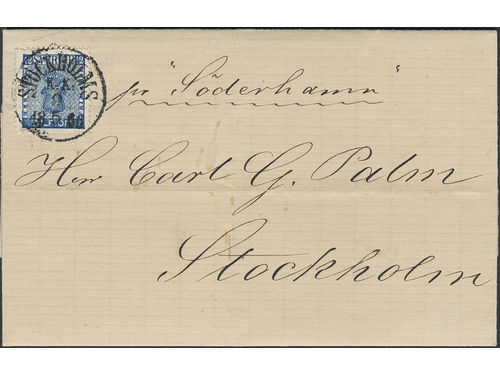 STOCKHOLMS
K.K.
3
pr "Söderhamn"
Herr Carl G. Palm
Stockholm